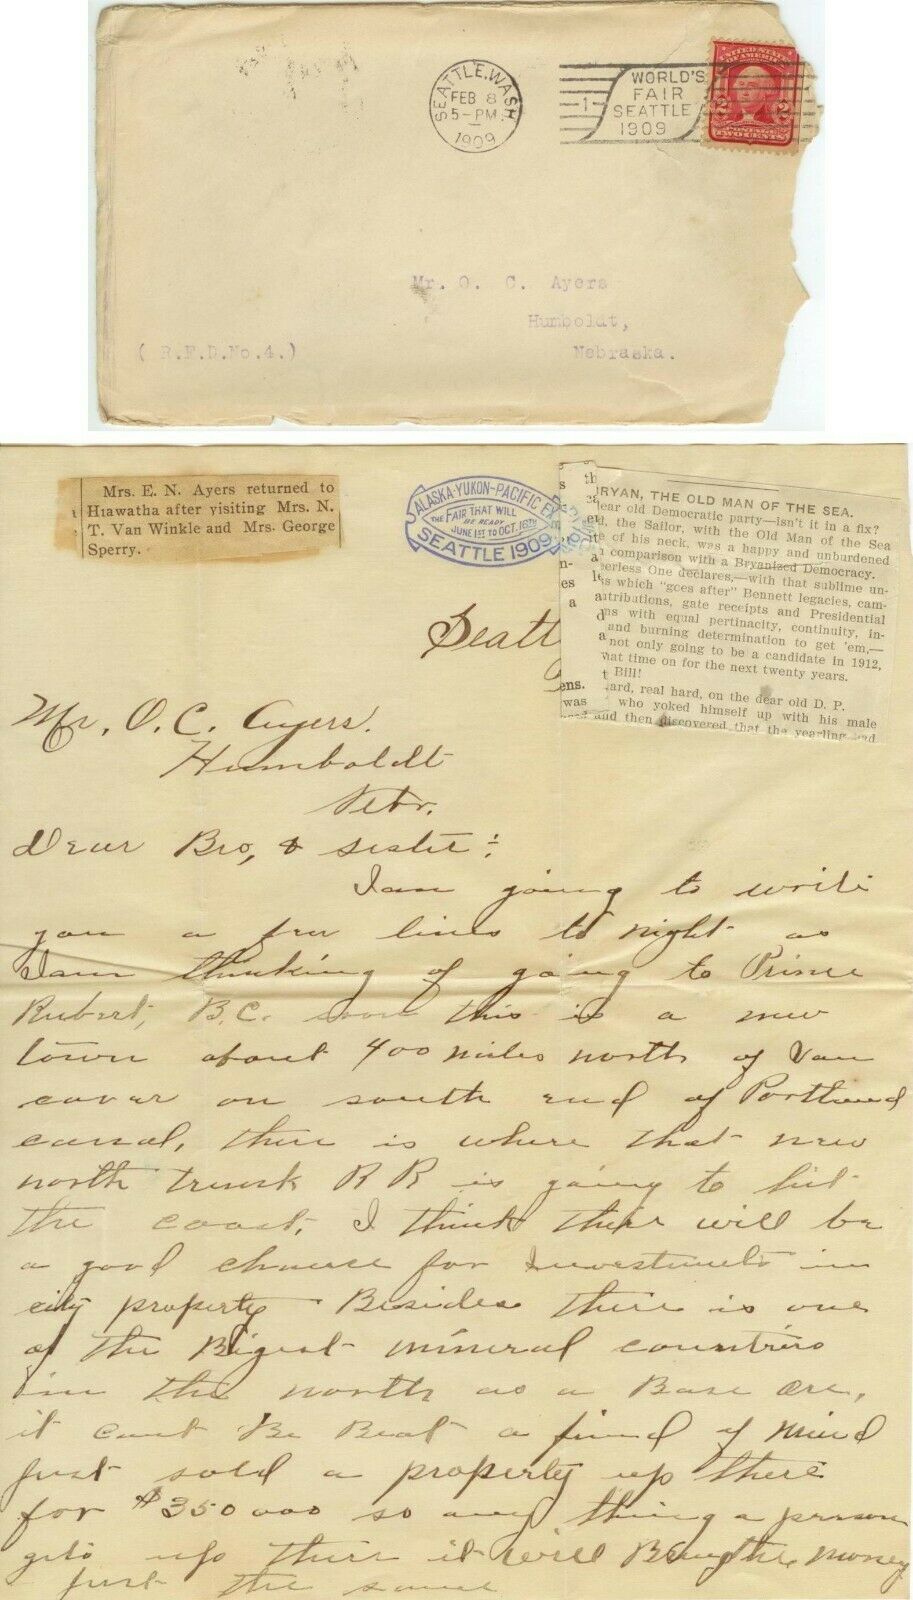 SEATTLE, WASH.
FEB 8
5-PM
1909
1
WORLD'S
FAIR
SEATTLE
1909
UNITED STATES
OF AMERICA
2 2
POSTAGE
TWO CENTS
Mr. O. C. Ayers
Humboldt,
(R.F.D.No.4.) Nebraska.
Mrs. E. N. Ayers returned to
Hiawatha after visiting Mrs. N.
T. Van Winkle and Mrs. George
Sperry.
ALASKA-YUKON-PACIFIC
THE FAIR THAT WILL
BE READY
JUNE 1ST TO OCT. 16TH
SEATTLE 1909
RYAN, THE OLD MAN OF THE SEA.
ear old Democratic party—isn't it in a fix?
d, the Sailor, with the Old Man of the Sea
e of his neck, was a happy and unburdened
comparison with a Bryanized Democracy.
eerless One declares,—with that sublime un-
s which "goes after" Bennett legacies, cam-
tributions, gate receipts and Presidential
ns with equal pertinacity, continuity, in-
and burning determination to get 'em,—
not only going to be a candidate in 1912,
hat time on for the next twenty years.
t Bill!
ard, real hard, on the dear old D. P.
who yoked himself up with his male
and then discovered that the yearling had
n-
es
a
ens.
was
Seatt
Mr. O. C. Ayers.
Humboldt
Nebr.
Dear Bro, & sister:
I am going to write
you a few lines to night as
I am thinking of going to Prince
Rubert, B.C. soon this is a new
town about 400 miles north of Van
cover on south end of Portland
canal, ther is where that new
north trunk R R is going to hit
the coast, I think ther will be
a good chance for Investments in
city property Besides there is one
of the Bigest mineral countries
in the north as a Base ore,
it cant Be Beat a friend of mind
just sold a property up there
for $350000 so any thing a person
gets up ther it will Bring the money
just the same